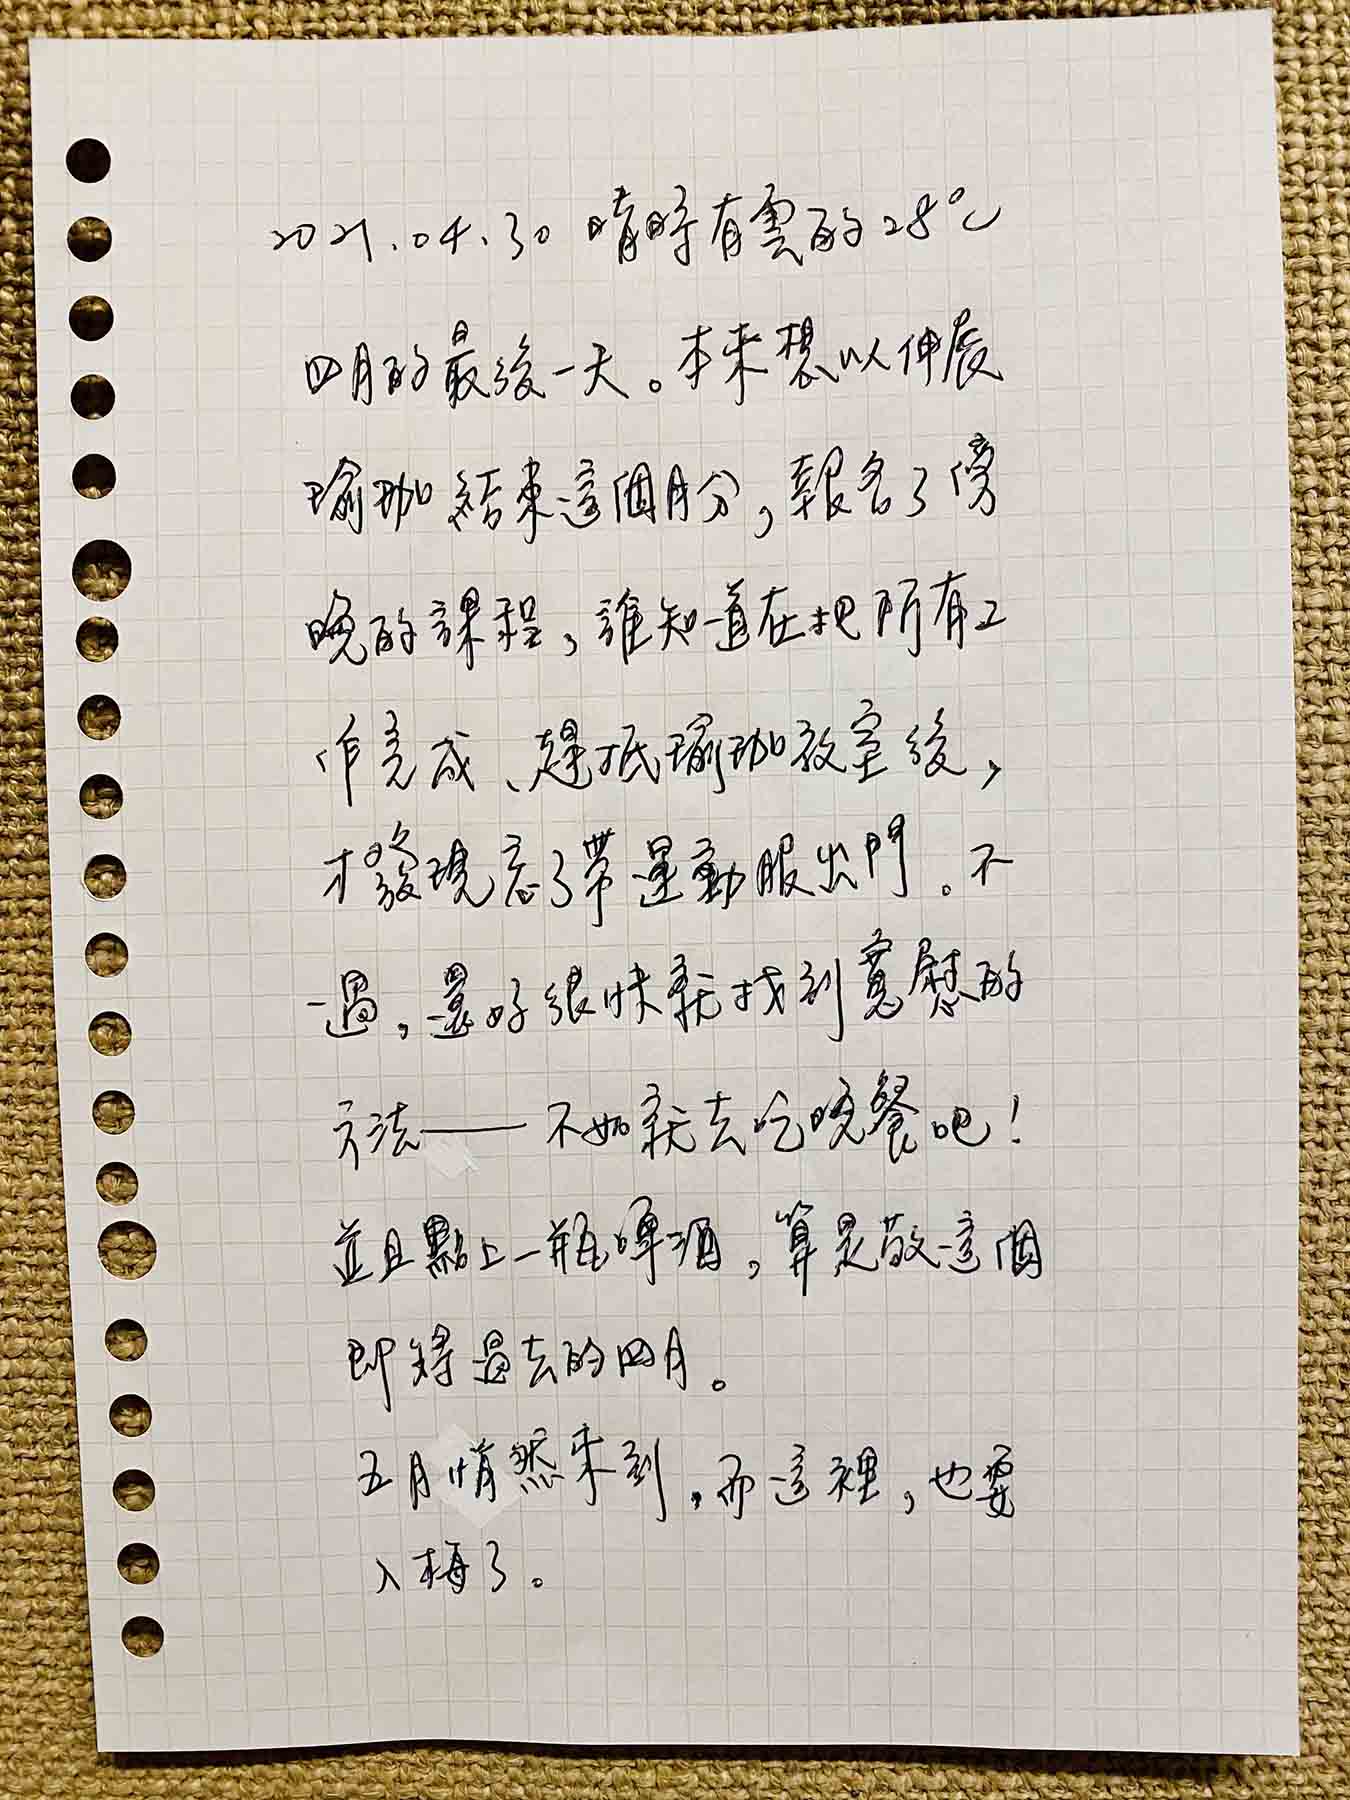 2021.04.30 晴時有雲的28°C
四月的最後一天。本來想以伸展
瑜珈結束這個月分，報名了傍
晚的課程，誰知道在把所有工
作完成、趕抵瑜珈教室後，
才發現忘了帶運動服出門。不
過，還好很快就找到寬慰的
方法——不如就去吃晚餐吧！
並且點上一瓶啤酒，算是敬這個
即將過去的四月。
五月悄然來到，而這裡，也要
入梅了。